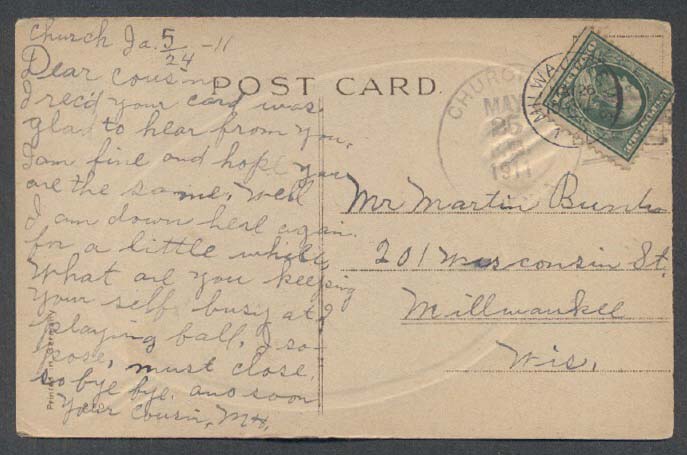 Church Ia. 5/24 -11
Dear cousin
I rec'd your card was
glad to hear from you.
I am fine and hope you
are the same. Well
I am down here again
for a little while
What are you keeping
your self busy at?
playing ball, I so-
pose, must close,
so bye bye. ans soon
Your cousin, MH.
POST CARD.
CHURCH
MAY
25
1911
MILWAU
Mr Martin Bunk
201 Wisconsin St.
Millwaukee
Wis.
Printed in Germany